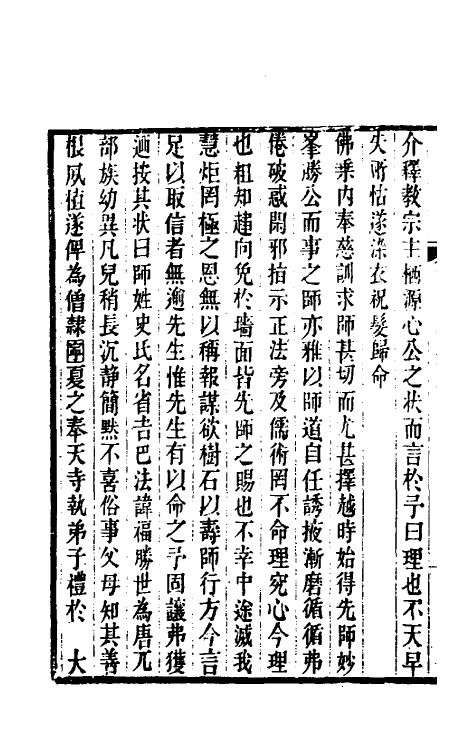 介釋教宗主栖源心公之状而言於予曰理也不天早
失所怙遂染衣祝髮歸命
佛乘内奉慈訓求師甚切而尤甚擇越時始得先師妙
峯勝公而事之師亦雅以師道自任誘掖漸磨循循弗
倦破惑閑邪指示正法旁及儒術罔不命理究心今理
也粗知趨向免於墻面皆先師之賜也不幸中途滅我
慧炬罔極之恩無以稱報謀欲樹石以壽師行方今言
足以取信者無逾先生惟先生有以命之予固讓弗獲
迺按其状曰師姓史氏名省吉巴法諱福勝世為唐兀
部族幼異凡兒稍長沉静簡黙不喜俗事父母知其善
根夙值遂俾為僧隸圇夏之奉天寺執弟子禮於 大